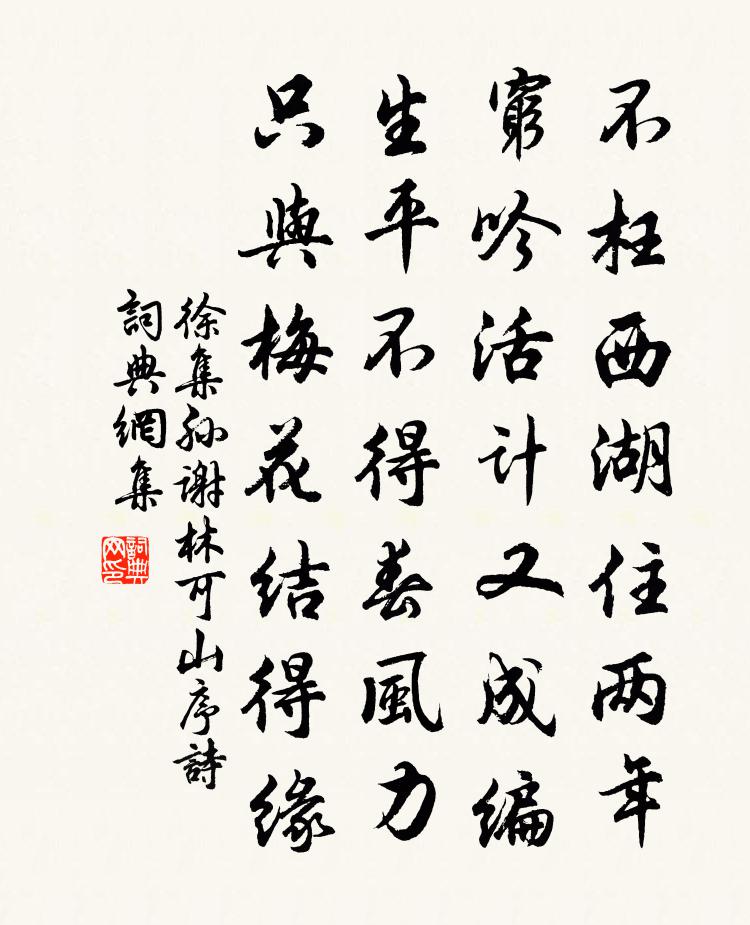 不枉西湖住两年
窮吟活计又成编
生平不得春風力
只與梅花结得缘
徐集孙謝林可山序詩
詞典網集
詞典
网印